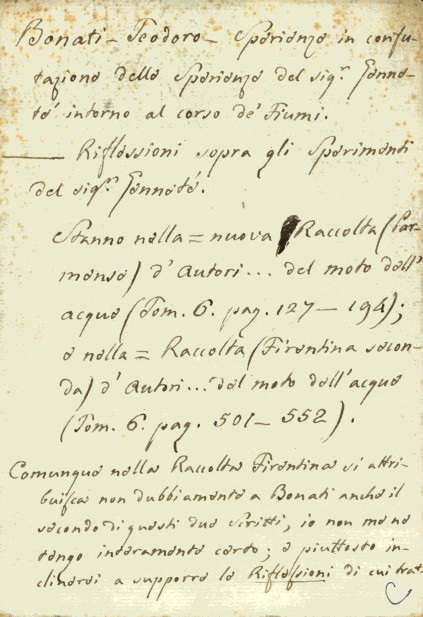 Bonati - Teodoro - Sperienze in confu-
tazione delle Sperienze del sigr. Genne-
té intorno al corso de' Fiumi.
—— Riflessioni sopra gli Sperimenti
del sigr. Genneté.
Stanno nella = nuova Raccolta (Par-
mense) d' Autori... del moto dell'
acque (Tom. 6. pag. 127 — 194);
e nella = Raccolta (Firentina secon-
da) d' Autori... del moto dell' acque
(Tom. 6. pag. 501 — 552).
Comunque nella Raccolta Firentina si attri-
buisca non dubbiamente a Bonati anche il
secondo di questi due scritti, io non me ne
tengo interamente certo; e piuttosto in-
clinerei a supporre le Riflessioni di cui trat-